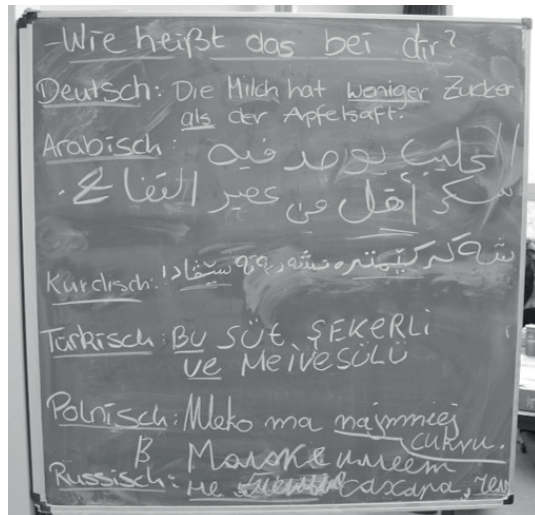 - Wie heißt das bei dir?
Deutsch: Die Milch hat weniger Zucker
als der Apfelsaft.
Arabisch: الحليب يوجد فيه
سكر أقل من عصير التفاح.
Kurdisch: شەکر کێمترە
Türkisch: Bu SÜT ŞEKERLİ
VE MEİVESÜLÜ
Polnisch: Mleko ma najmniej
cukru.
В Молоке имеем
Russisch: не сахара, чем